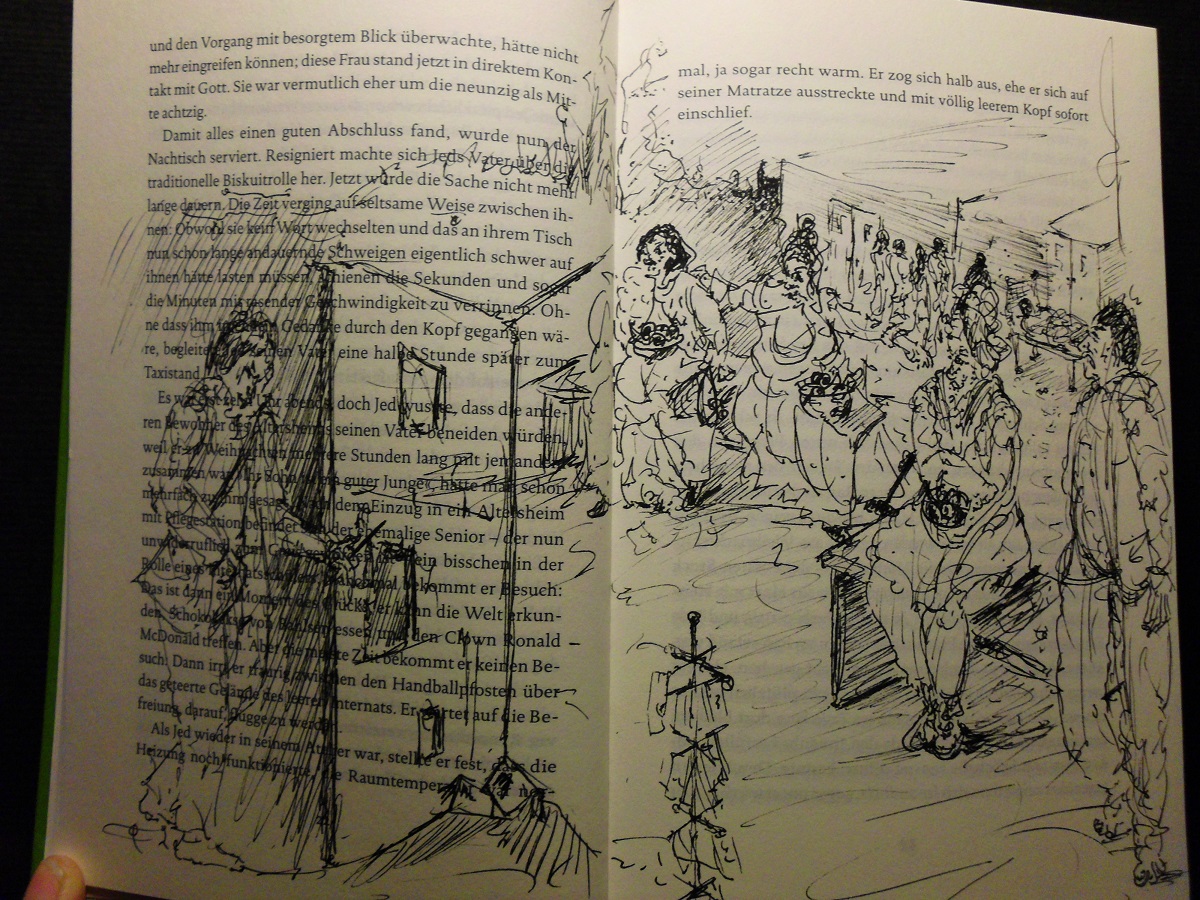 und den Vorgang mit besorgtem Blick überwachte, hätte nicht
mehr eingreifen können; diese Frau stand jetzt in direktem Kon-
takt mit Gott. Sie war vermutlich eher um die neunzig als Mit-
te achtzig.
Damit alles einen guten Abschluss fand, wurde nun der
Nachtisch serviert. Resigniert machte sich Jeds Vater über die
traditionelle Biskuitrolle her. Jetzt würde die Sache nicht mehr
lange dauern. Die Zeit verging auf seltsame Weise zwischen ih-
nen: Obwohl sie kein Wort wechselten und das an ihrem Tisch
nun schon lange andauernde Schweigen eigentlich schwer auf
ihnen hätte lasten müssen, schienen die Sekunden und sogar
die Minuten mit rasender Geschwindigkeit zu verrinnen. Oh-
ne dass ihm Gedanke durch den Kopf gegangen wä-
re, begleitete seinen Vater eine halbe Stunde später zum
Taxistand.
Es war erst zehn Uhr abends, doch Jed wusste, dass die ande-
ren Bewohner des Altersheims seinen Vater beneiden würden,
weil er zu Weihnachten mehrere Stunden lang mit jemandem
zusammen war. Ihr Sohn ist ein guter Junge, hatte man schon
mehrfach zu ihm gesagt. Nach dem Einzug in ein Altersheim
mit Pflegestation befindet sich der ehemalige Senior – der nun
unwiderruflich zum ein bisschen in der
Rolle eines Internatsschülers. Manchmal bekommt er Besuch:
Das ist dann ein Moment des Glücks, er kann die Welt erkun-
den, Schokokekse von Bahlsen essen und den Clown Ronald
McDonald treffen. Aber die meiste Zeit bekommt er keinen Be-
such: Dann irrt er traurig zwischen den Handballpfosten über
das geteerte Gelände des leeren Internats. Er wartet auf die Be-
freiung, darauf, flügge zu werden.
Als Jed wieder in seinem Atelier war, stellte er fest, dass die
Heizung noch funktionierte, die Raumtemperatur war nor-
mal, ja sogar recht warm. Er zog sich halb aus, ehe er sich auf
seiner Matratze ausstreckte und mit völlig leerem Kopf sofort
einschlief.